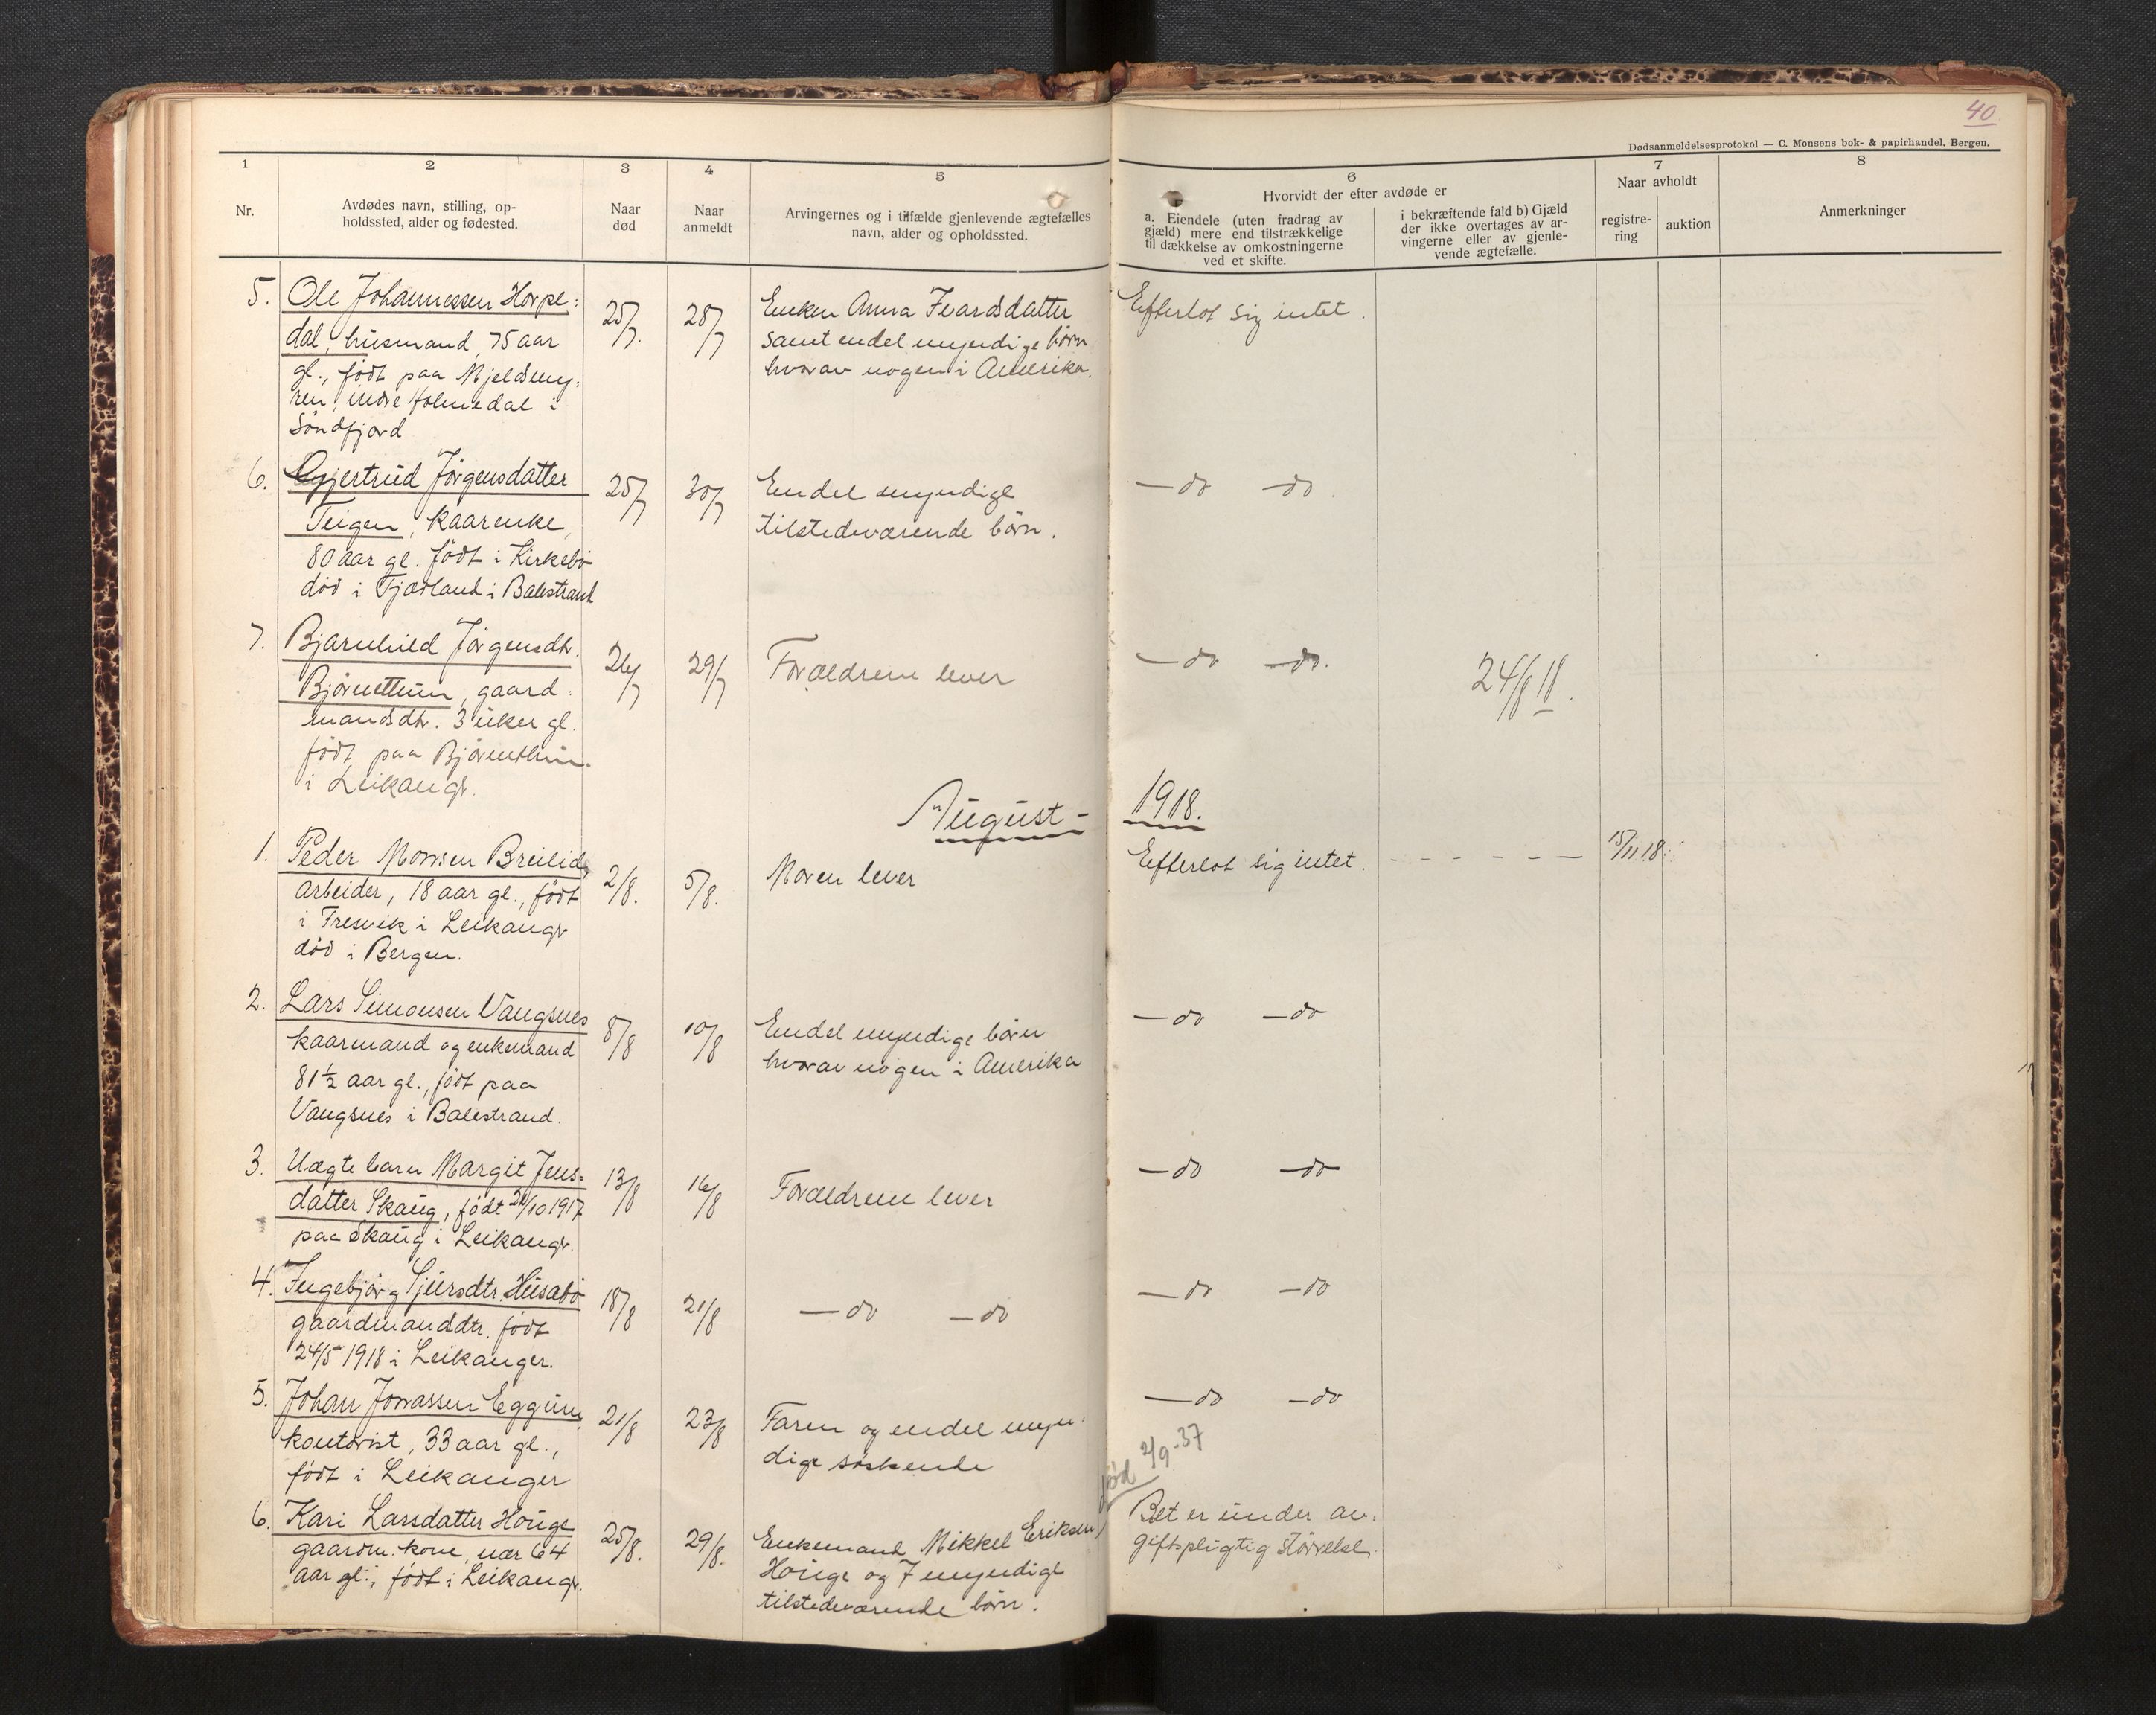 40.
Dødsanmeldelsesprotokol — C. Monsens bok- & papirhandel, Bergen.
1
2
3
4
5
6
7
8
Nr.
Avdødes navn, stilling, op-
holdssted, alder og fødested.
Naar
død
Naar
anmeldt
Arvingernes og i tilfælde gjenlevende ægtefælles
navn, alder og opholdssted.
Hvorvidt der efter avdøde er
a. Eiendele (uten fradrag av
gjæld) mere end tilstrækkelige
til dækkelse av omkostningerne
ved et skifte.
i bekræftende fald b) Gjæld
der ikke overtages av ar-
vingerne eller av gjenle-
vende ægtefælle.
Naar avholdt
registre-
ring
auktion
Anmerkninger
5. Ole Johannessen Horpe-
dal, husmand, 75 aar
gl., født paa Mjeldsmy-
ren, indre Holmedal i
Söndfjord
25/7.
28/7
Enken Anna Ivarsdatter
samt endel myndige börn
hvorav nogen i Amerika.
Efterlot sig intet.
6. Gjertrud Jörgensdatter
Teigen, kaarenke,
80 aar gl. født i Kirkebö
död i Fjærland i Balestrand
25/7
30/7
Endel myndige
tilstedeværende börn.
— do — do.
7. Bjarnhild Jörgensdtr.
Björnettun, gaard-
mandsdtr. 3 uker gl.
født paa Björnettun.
i Leikangr.
26/7
29/7
Forældrene lever
— do — do.
24/8 18.
August - 1918.
1. Peder Monsen Breilid,
arbeider, 18 aar gl., født
i Fresvik i Leikangr
död i Bergen.
2/8.
5/8.
Moren lever
Efterlot sig intet. - - - - - —
15/11 18.
2. Lars Simonsen Vangsnes
kaarmand og enkemand
81½ aar gl., født paa
Vangsnes i Balestrand.
8/8
10/8
Endel myndige börn
hvorav nogen i Amerika
— do — do
3. Uægte barn Margit Jens-
datter Skaug, født /10 1917
paa Skaug i Leikangr.
13/8
16/8
Forældrene lever
— do — do
4. Ingebjörg Sjursdtr. Husabö
gaardmandsdtr. født
24/5 1918 i Leikanger.
18/8
21/8
— do — do
— do — do
5. Johan Jonassen Eggum,
kontorist, 33 aar gl.,
født i Leikanger
21/8
23/8
Faren og endel myn-
dige söskende
— do — do
død 2/9-37
6. Kari Larsdatter Hönge
gaardm. kone, nær 64
aar gl., født i Leikangr.
25/8.
29/8.
Enkemand Mikkel Eriksen
Hönge og 7 myndige
tilstedeværende börn.
Bet er under av-
giftspligtig störrelse.